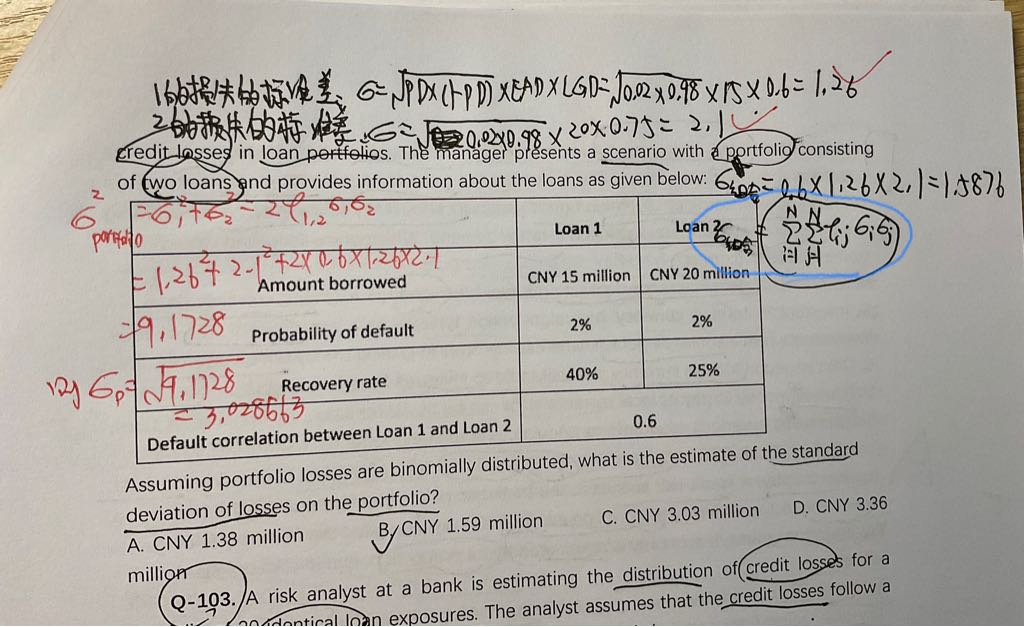 1的损失的标准差. σ=√PD×(1-PD)×EAD×LGD=√0.02×0.98×15×0.6=1.26
2的损失的标准差.σ=√0.02×0.98×20×0.75=2.1
credit losses in loan portfolios. The manager presents a scenario with a portfolio consisting
of two loans and provides information about the loans as given below:
=0.6×1.26×2.1=1.5876
σ²portfolio=σ₁²+σ₂²=2ρ₁,₂σ₁σ₂
Loan 1 Loan 2
= N∑i=1 N∑j=1 ρij σiσj
=1.26²+2.1²+2×0.6×1.26×2.1
Amount borrowed CNY 15 million CNY 20 million
=9.1728
Probability of default 2% 2%
则σp=√9.1728
Recovery rate 40% 25%
=3.028663
Default correlation between Loan 1 and Loan 2 0.6
Assuming portfolio losses are binomially distributed, what is the estimate of the standard
deviation of losses on the portfolio?
A. CNY 1.38 million B. CNY 1.59 million C. CNY 3.03 million D. CNY 3.36
million
Q-103. A risk analyst at a bank is estimating the distribution of credit losses for a
20 identical loan exposures. The analyst assumes that the credit losses follow a